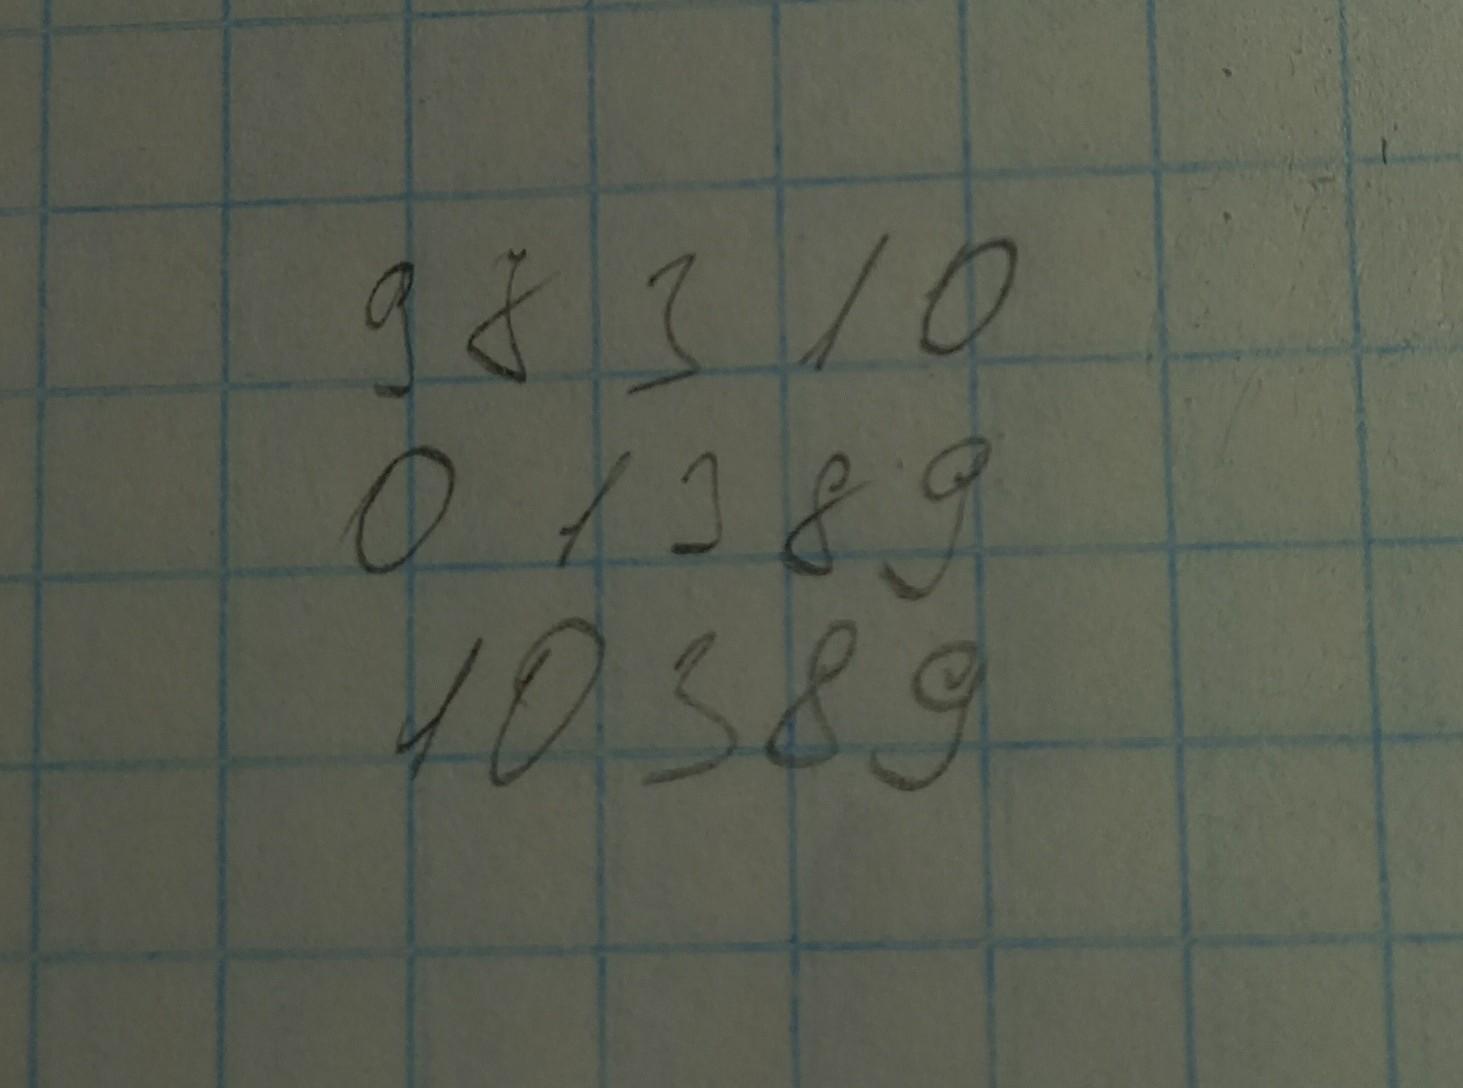 9 8 3 1 0
0 1 3 8 9
1 0 3 8 9